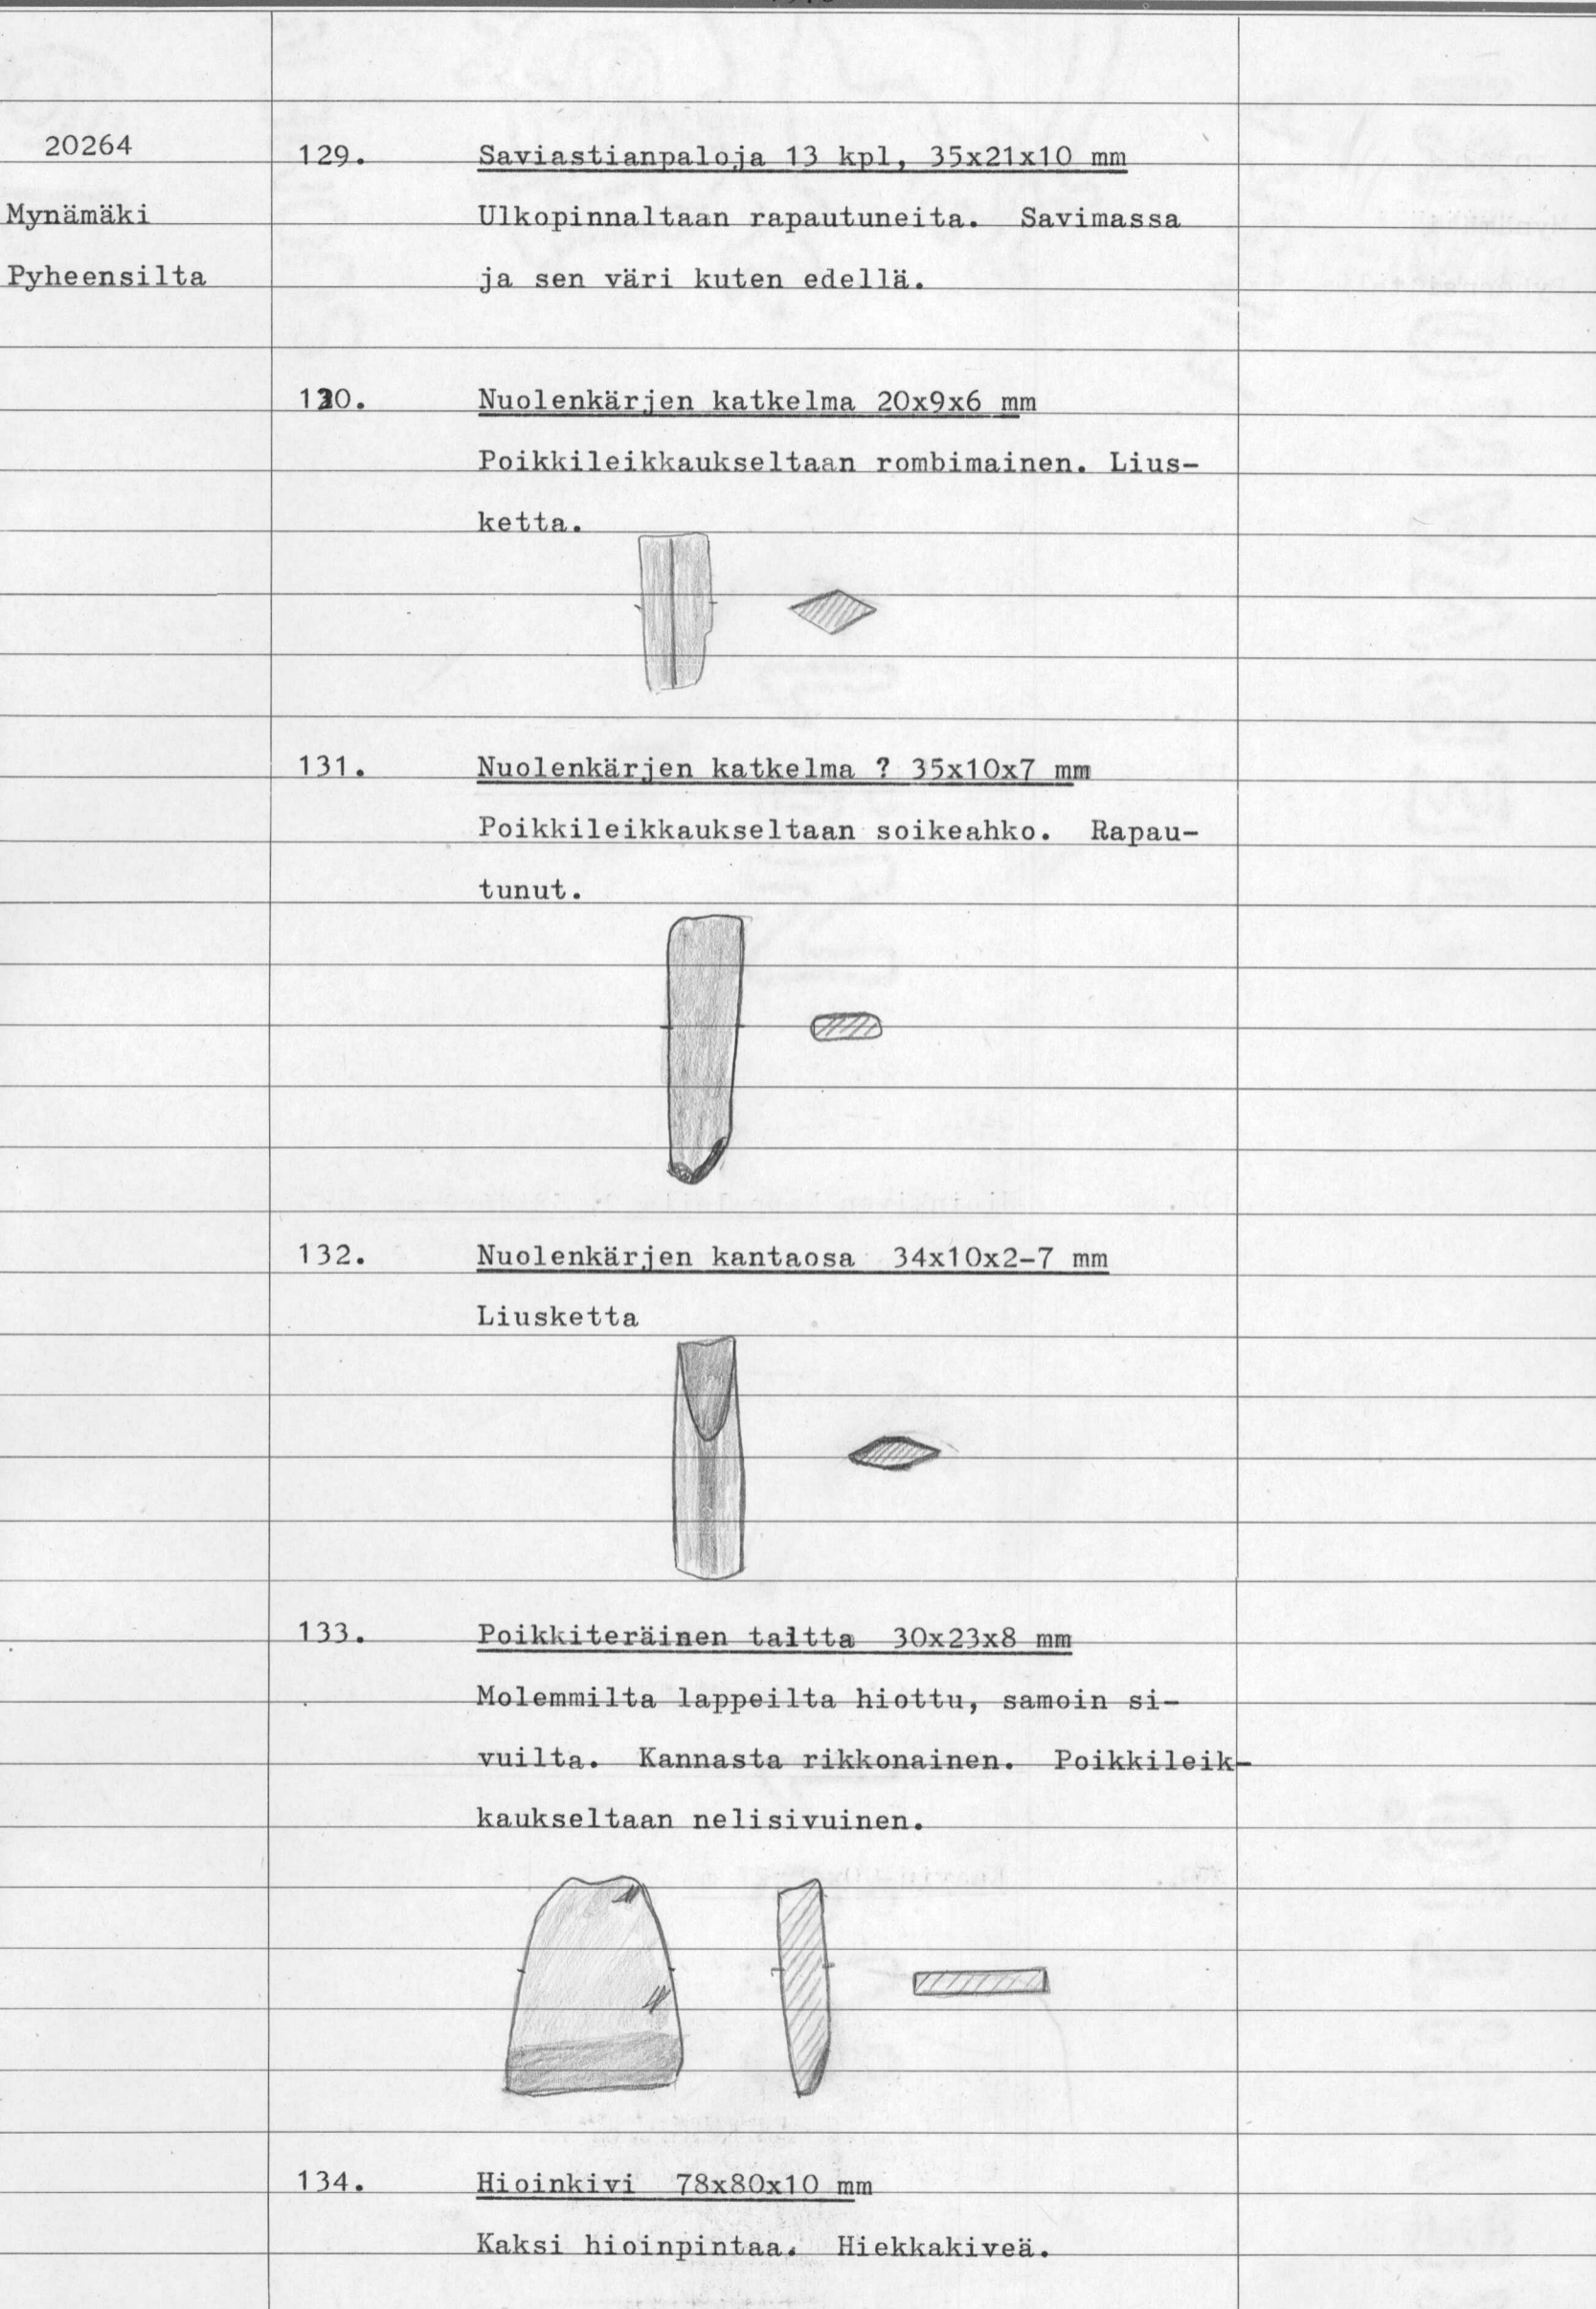 20264
Mynämäki
Pyheensilta
129. Saviastianpaloja 13 kpl, 35x21x10 mm
Ulkopinnaltaan rapautuneita. Savimassa
ja sen väri kuten edellä.
130. Nuolenkärjen katkelma 20x9x6 mm
Poikkileikkaukseltaan rombimainen. Lius-
ketta.
131. Nuolenkärjen katkelma ? 35x10x7 mm
Poikkileikkaukseltaan soikeahko. Rapau-
tunut.
132. Nuolenkärjen kantaosa 34x10x2-7 mm
Liusketta
133. Poikkiteräinen taltta 30x23x8 mm
Molemmilta lappeilta hiottu, samoin si-
vuilta. Kannasta rikkonainen. Poikkileik-
kaukseltaan nelisivuinen.
134. Hioinkivi 78x80x10 mm
Kaksi hioinpintaa. Hiekkakiveä.